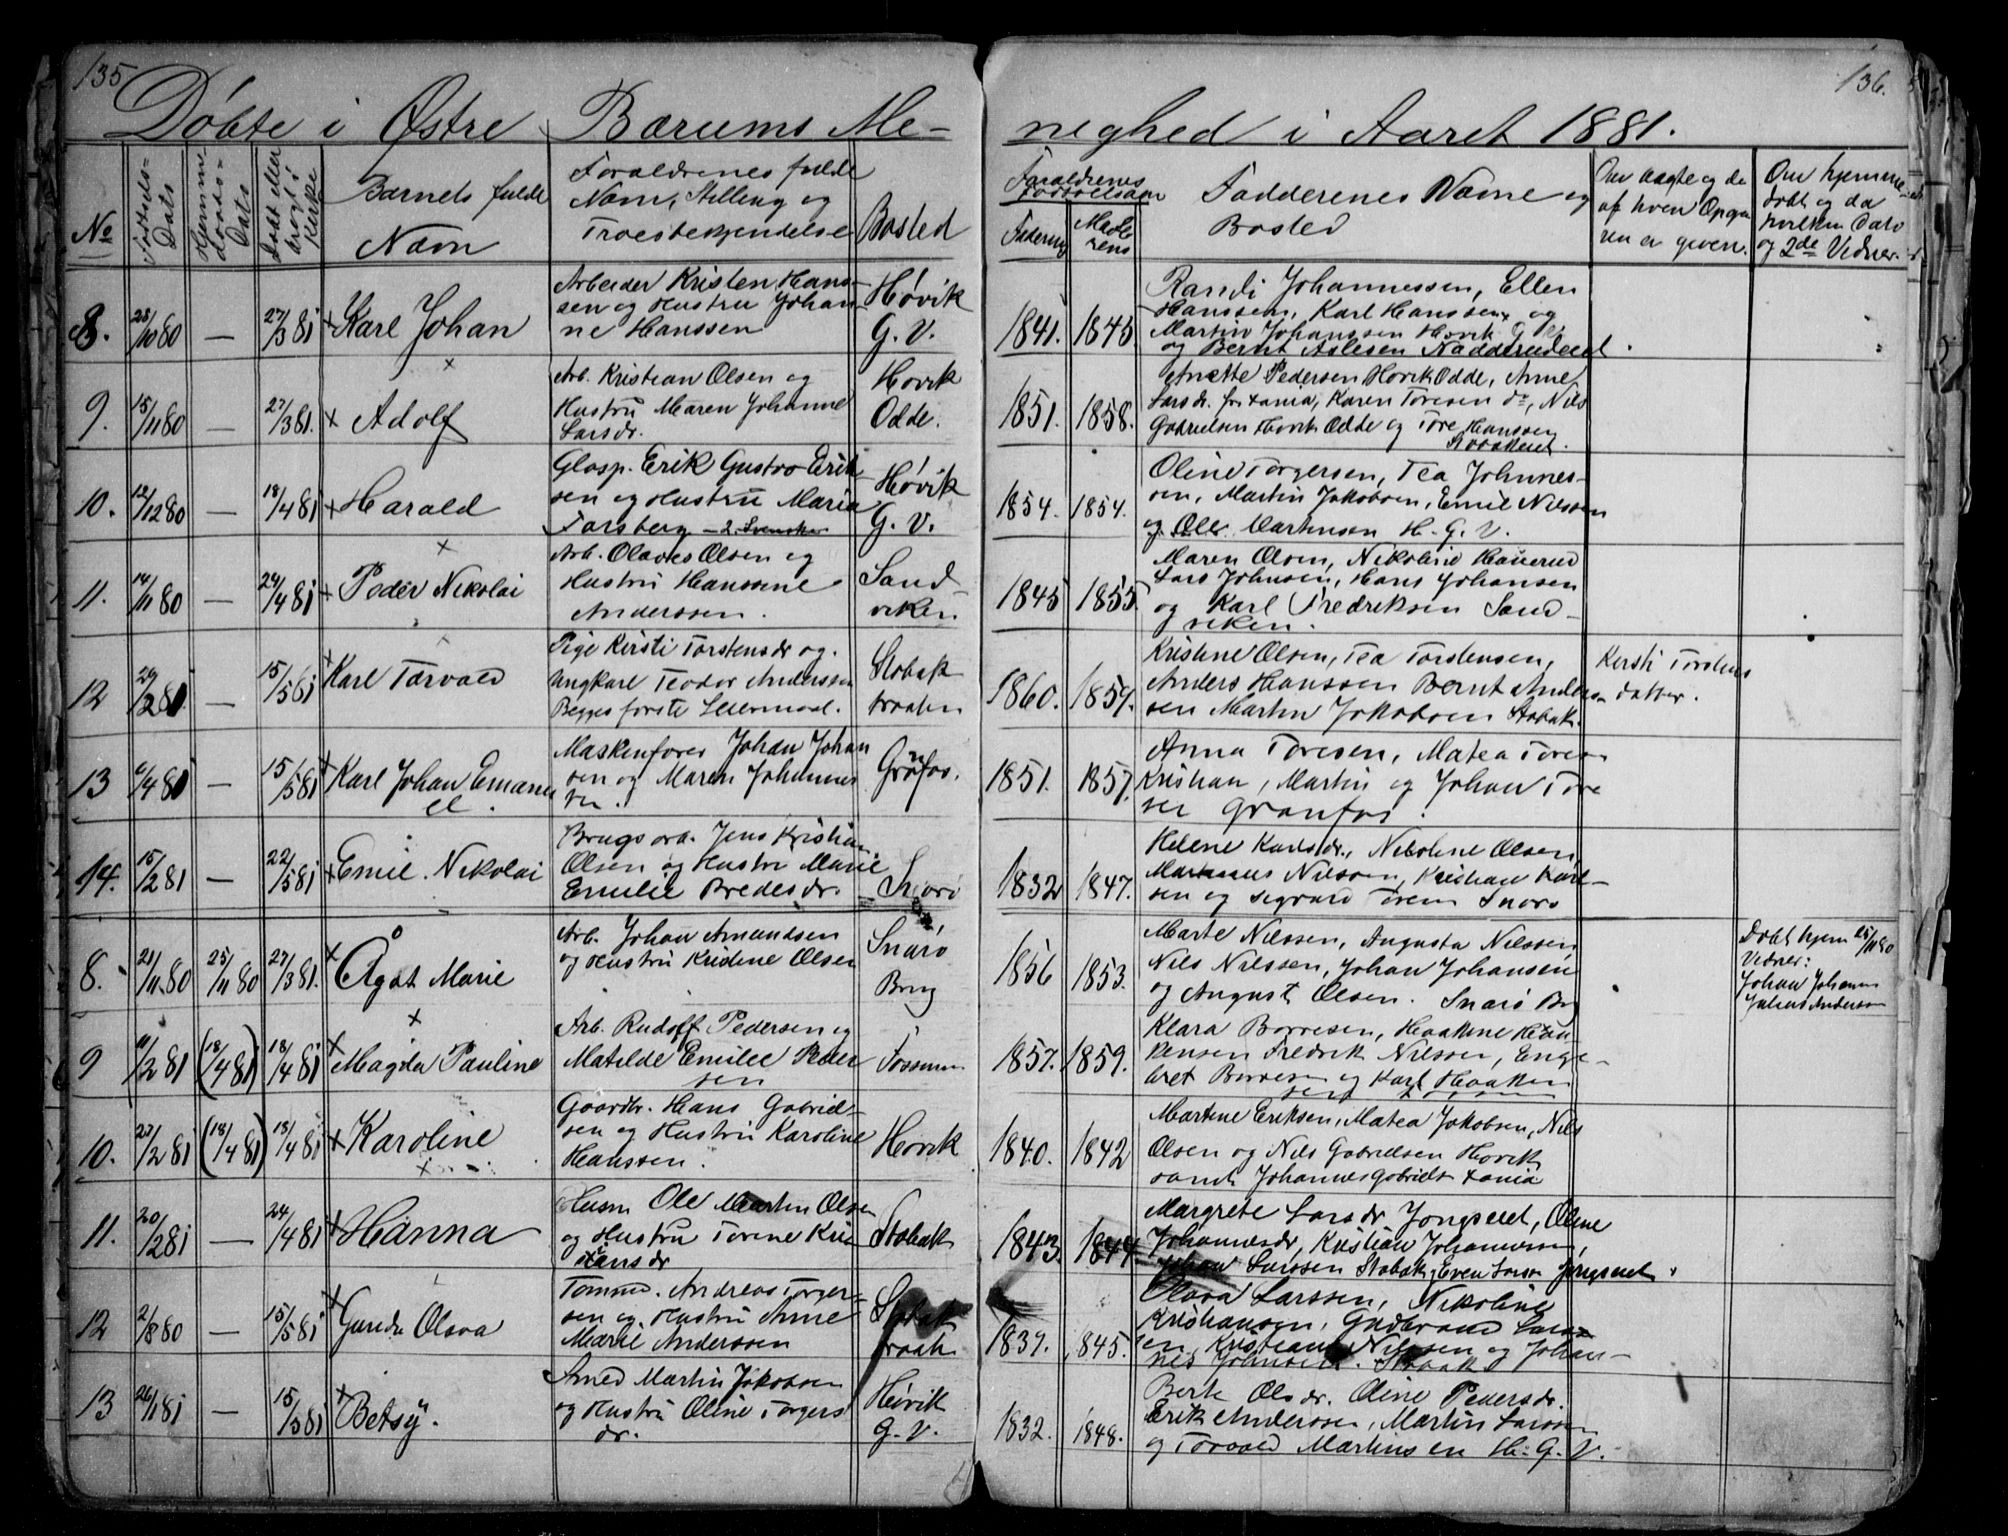 135
136.
Döbte i Østre Bærums Me-
neghed i Aaret 1881.
No
Födsels-
Dato
Hjemme-
daabs-
Dato
Döbt eller
bragt i
Kirke
Barnets fulde
Navn
Forældrenes fulde
Navn, Stilling og
Troesbekjendelse
Bosted
Forældrenes
Födselsaar
Faderens
Mode
rens
Faddernes Navne og
Bosted
Om uægte og da
af hvem Opgav
en er given.
Om hjemme-
döbt og da
hvilken Dato
og 2de Vidner.
8. 28/10 80 — 27/3 81 Karl Johan
Arbeider Kristen Hans-
sen og Hustru Johan-
ne Hanssen
Høvik
G. V.
1841. 1845
Randi Johannessen, Ellen
Hanssen, Karl Hanssen, og
Martin Johanssen Høvik G V
og Bernt Aslesen Nadderudeiet.
9. 15/11 80 — 27/3 81. Adolf
Arb. Kristian Olsen og
Hustru Maren Johanne
Larsdr.
Høvik
Odde.
1851. 1858.
Anette Pedersen Høvik Odde, Anne
Larsdr. fr. Xania, Karen Toresen do, Nils
Gabrielsen Høvik Odde og Tore Hanssen
10. 12/12 80 — 18/4 81 Harald
Glasp. Erik Gustav Erik
sen og Hustru Maria
Forsberg — 2. Svensker
Høvik
G. V.
1854. 1854.
Oline Torgersen, Tea Johnnes-
sen, Martin Jakobsen, Emil Nilssen
og Ole Martinsen H. G. V.
11. 14/11 80 — 24/4 81 Peder Nikolai
Arb. Olaves Olsen og
Hustru Hanssine
Anderssen.
Sand
viken
1845 1855
Maren Olsen, Nikoline Hauerud
Lars Johnsen, Hans Johansen
og Karl Fredriksen Sand-
viken.
12 20/2 81. — 15/5 61 Karl Torvald
Pige Kersti Torstensdr og
Ungkarl Teodor Anderssen
Begges förste Leiermaal.
Stobak
traaten
1860. 1859.
Kristine Olsen, Tea Torstensen,
Anders Hanssen Bernt Anders-
sen Martin Jakobsen Stobak.
Kersti Torstens
datter.
13 6/4 81 — 15/5 81 Karl Johan Emanu
el.
Maskinfører Johan Johan
sen og Maren Johannes
sen.
Granfos.
1851. 1857.
Anna Toresen, Matea Tores
Kristian, Martin og Johan Tore
sen Granfos.
14. 15/2 81 — 22/5 81 Emil Nikolai
Brugsarb. Jens Kristian
Olsen og Hustru Marie
Emilie Bredesdr.
Snarö
1832 1847.
Helene Karlsdr., Nikoline Olsen,
Markus Nilssen, Kristian Karl-
sen og Sigvard Toresen Snarö
8. 21/11 80 25/11 80 27/3 81. Ågot Marie
Arb. Johan Amundsen
og Hustru Kristine Olsen
Snarö
Brug
1856 1853.
Marte Nilssen, Augusta Nilssen
Nils Nilssen, Johan Johansen
og August Olsen. Snarö Br
Döbt hjem 25/11 80
Vidner:
Johan Johansen
Julius Andersen
9 11/2 81 (18/4 81) 18/4 81 Magda Pauline
Arb. Rudolf Pedersen og
Matilde Emilie Peder
sen
Fossum
1857. 1859.
Klara Borresen, Haakine Haa-
kensen Fredrik Nilssen, Enge-
bret Borresen og Karl Haaken
sen Fossum
10. 27/2 81 (18/4 81) 18/4 81 Karoline
Gaardbr. Hans Gabriel-
sen og Hustru Karoline
Hanssen.
Høvik
1840. 1842
Martine Eriksen, Matea Jakobsen, Nils
Olsen og Nils Gabrielsen Høvik
samt Johannes Gabriels. Xania
11. 20/2 81 — 24/4 81 Hanna
Husm Ole Martin Olsen
og Hustru Torine Kris
tiansdr
Stobak
1843. 1844
Margrete Larsdr Jongseiet, Oline
Johannesdr, Kristian Johannessen,
Johan Larssen Stobak, Even Larsen Jongseiet.
12 2/8 80 — 15/5 81 Gunda Olava
Tömm. Andreas Torger-
sen og Hustru Anne
Marie Anderssen
Stobak
traaten
1839. 1845.
Olava Larssen, Nikoline
Kristiansen, Gudbrand Lars-
sen, Kristian Nilssen og Johan-
nes Johnsen. Stobak
13 26/1 81 — 15/5 81 Betsy.
Smed Martin Jakobsen
og Hustru Oline Torgers
dr.
Høvik
G. V.
1832. 1848.
Berte Olsdr. Oline Pedersdr.
Erik Anderssen, Martin Larssen
og Torvald Martinsen H. G. V.